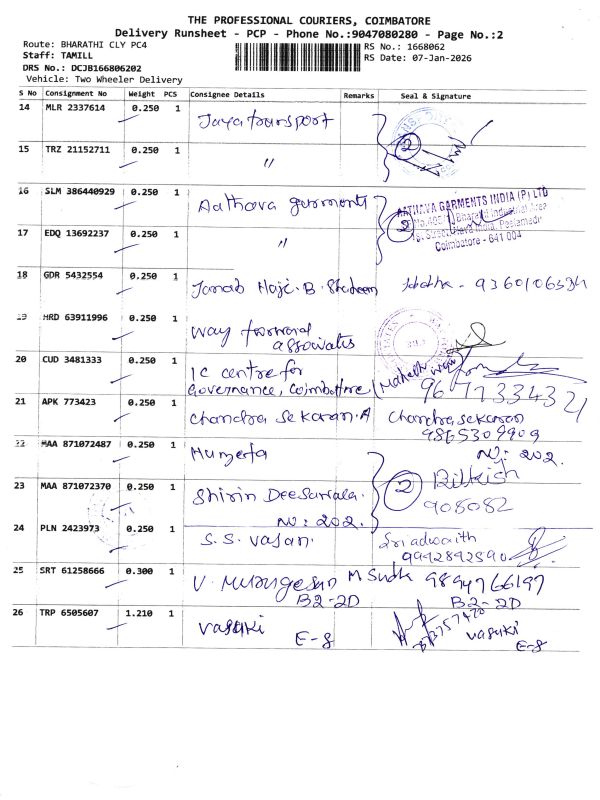 THE PROFESSIONAL COURIERS, COIMBATORE
Delivery Runsheet - PCP - Phone No.:9047080280 - Page No.:2
Route: BHARATHI CLY PC4
RS No.: 1668062
Staff: TAMILL
RS Date: 07-Jan-2026
DRS No.: DCJB166806202
Vehicle: Two Wheeler Delivery
S No Consignment No Weight PCS Consignee Details Remarks Seal & Signature
14 MLR 2337614 0.250 1 Jaya transport 2
15 TRZ 21152711 0.250 1 "
16 SLM 386440929 0.250 1 Aathava garments 2
AATHAVA GARMENTS INDIA (P) LTD
Bharathi Industrial Area
Coimbatore - 641 004
17 EDQ 13692237 0.250 1 "
18 GDR 5432554 0.250 1 Janab Haji. B. 
19 MRD 63911996 0.250 1 Way forward
associates
20 CUD 3481333 0.250 1 IC centre for
Governance, Coimbatore 9677334321
21 APK 773423 0.250 1 Chandra Sekaran. A Chandra sekaran
9865309909
22 MAA 871072487 0.250 1 No: 202.
23 MAA 871072370 0.250 1 Shirin 2
908082
No: 202.
24 PLN 2423973 0.250 1 S. S. Vasan. Sri adwaith
9942892890
25 SRT 61258666 0.300 1 V. Murugesan M Sudha 9894766197
B2-2D B2-2D
26 TRP 6505607 1.210 1 Vasuki vasuki
E-8 E-8